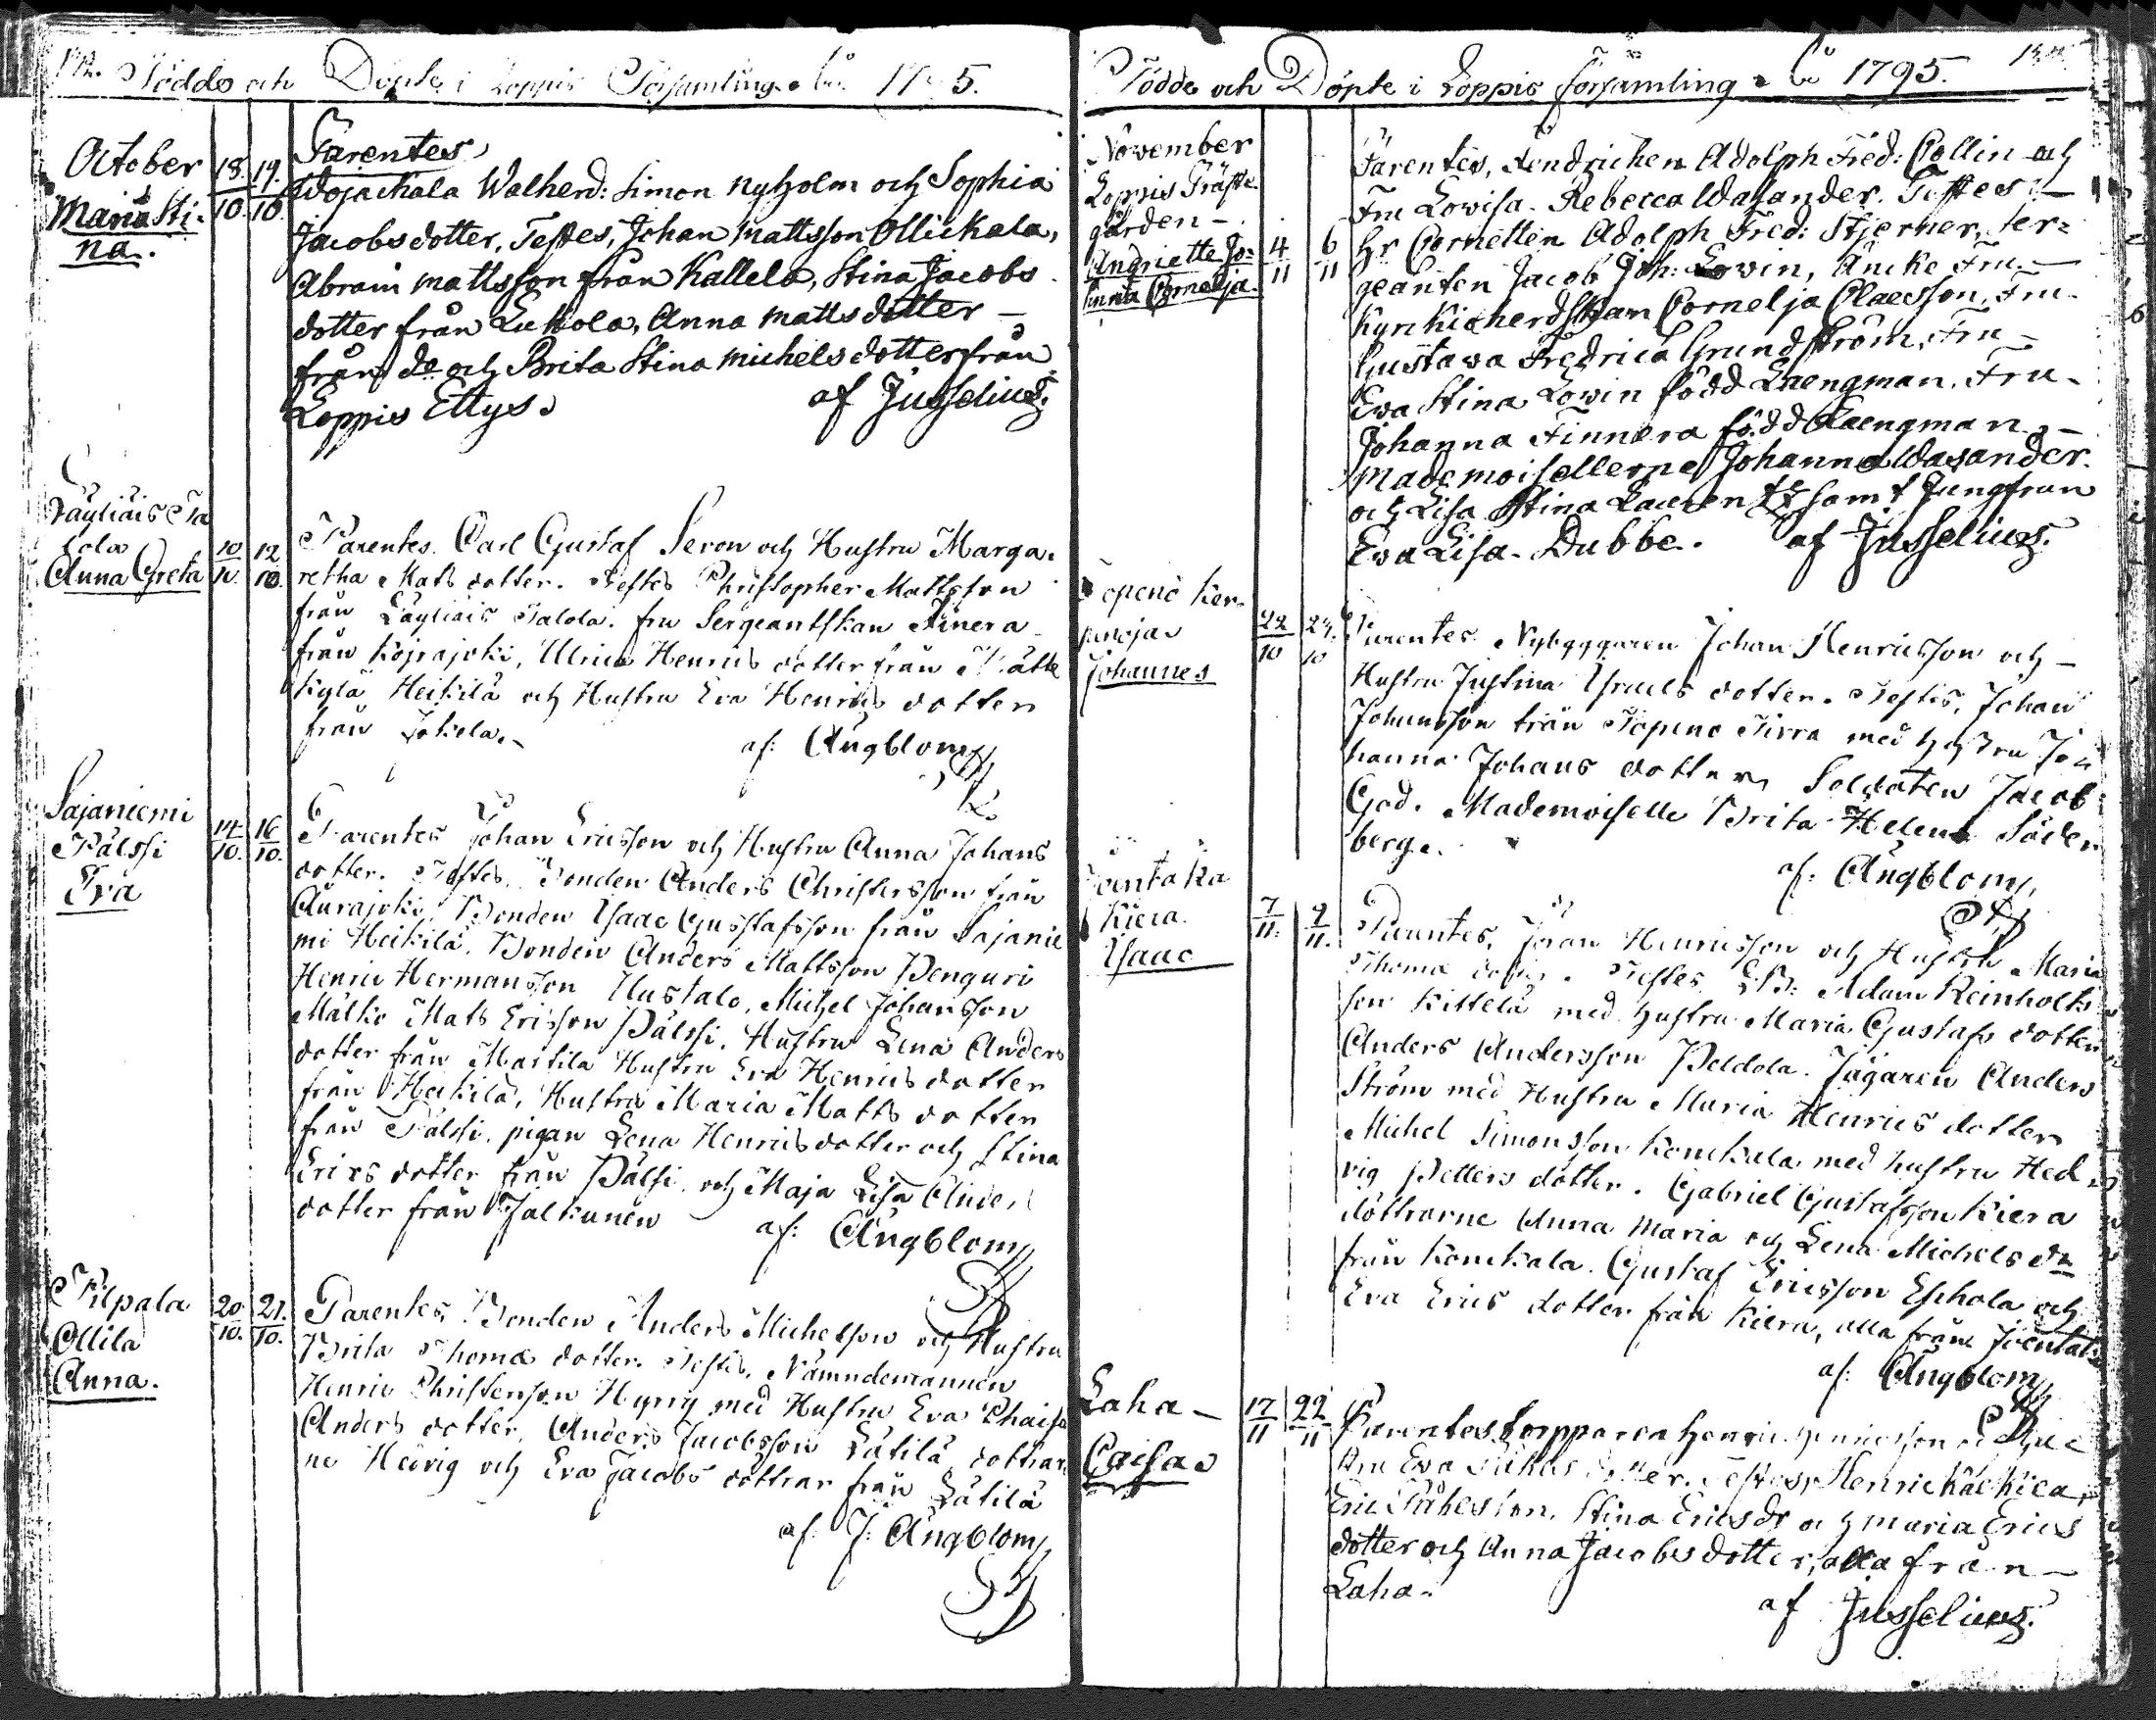 Födde och Döpte i Loppis Församling år 1795.
October 18/10 19/10
Maria Sti-
na.
Parentes
Wojackala Walherd: Simon Nyholm och Sophia
Jacobs dotter, Testes, Johan Mattsson Ollickala,
Abram Mattsson från Kallela, Stina Jacobs
dotter från Lukkola, Anna Matts dotter –
från do och Brita Stina Michels dotter från
Loppis Ettys. af Jusselius.
Läyliäis Ta
lola
Anna Greta 10/10 12/10
Parentes. Carl Gustaf Seron och Hustru Marga-
retha Mats dotter. Testes Christopher Mattsson
från Läyliäis Talola. fru Sergeantskan Finera
från Kojrajoki, Ulrica Henrics dotter från
Kylä Heikilä och Hustru Eva Henrics dotter
från Jokela. af: Ångblom
Sajaniemi
Pälssi
Eva 14/10. 16/10.
Parentes Johan Ericsson och Hustru Anna Johans
dotter. Testes. Bonden Anders Christersson från
Aurajoki, Bonden Isaac Gustafsson från Sajanie
mi Heikilä, Bonden Anders Mattsson Penguri
Henric Hermansson Uustalo, Michel Johansson
Mälki Mats Ericsson Pälssi, Hustru Lena Anders
dotter från Martila Hustru Eva Henrics dotter
från Heikilä, Hustru Maria Matts dotter
från Pälssi, pigan Lena Henrics dotter och Stina
Erics dotter från Pälsi, och Maja Lisa Ander
dotter från Jalkanen af: Ångblom
Pilpala
Ollila
Anna. 20/10. 21/10.
Parentes, Bonden Anders Michelsson och Hustru
Brita Thomæ dotter. Testes, Nämndemannen
Henric Christersson Hyrry med Hustru Eva Chaisa
Anders dotter, Anders Jacobsson Lätilä döttrar
ne Hedvig och Eva Jacobs döttrar från Lätilä
af: J: Ångblom
Födde och Döpte i Loppis församling år 1795.
November
Loppis Präste
gården –
Andriette Jo-
hanna Cornelja. 4/11 6/11
Parentes, Fendrichen Adolph Fred: Collin och
Fru Lowisa Rebecca Wasander. Testes –
Hr Cornetten Adolph Fred: Stjerner, Ser-
geanten Jacob Joh: Lowin, Äncke Fru –
Kyrckioherdskan Cornelja Claesson, Fru
Gustawa Fredrica Grundström, Fru –
Ewa Stina Lowin född Laengman, Fru –
Johanna Finnera född Laengman –
Mademoisellerne Johanna Wasander
och Lisa Stina samt Jungfrun
Ewa Lisa Dubbe. af Jusselius.
Topeno Ker-
Johannes 22/10 24/10
Parentes Nybyggaren Johan Henricsson och –
Hustru Justina Israels dotter. Testes, Johan
Johansson från Topeno Pirra med Hustru Jo
hanna Johans dotter, Soldaten Jacob
God. Mademoiselle Brita Helena Söder
berg. af: Ångblom
Joentaka
Kiera.
Isaac 7/11. 9/11.
Parentes, Johan Henricsson och Hustru Maria
Thomæ dotter. Testes Adam Reinholts
son Kittelä med Hustru Maria Gustafs dotter
Anders Andersson Peldola. Jägaren Anders
Ström med Hustru Maria Henrics dotter
Michel Simonsson Konckala med hustru Hed
vig Petters dotter. Gabriel Gustafsson Kiera
döttrarne Anna Maria och Lena Michels dr
från Konckala. Gustaf Ericsson Eskola och
Eva Erics dotter från Kiera, alla från Joentaka
af: Ångblom
Laha –
Caisa 17/11 22/11
Parentes Torpparen Henric Henricsson och Hu-
stru Ewa dotter. Testes, Henric
Eric Påhlsson, Stina Erics dr och Maria Erics
dotter och Anna Jacobs dotter, alla från –
Laha. af Jusselius.